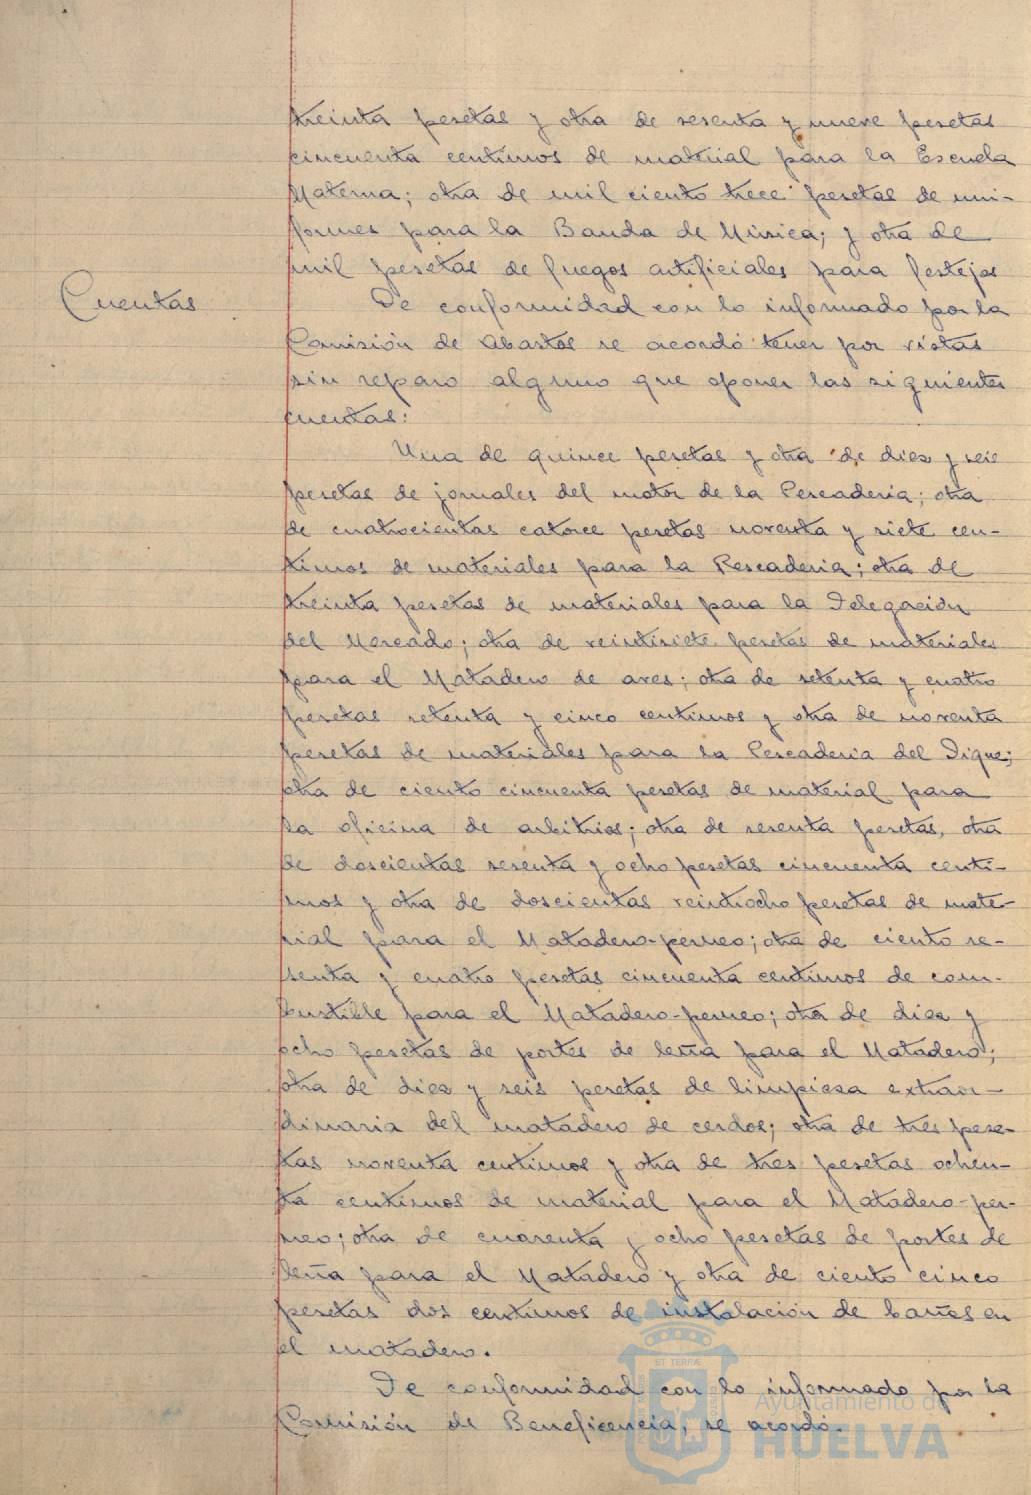 treinta pesetas y otra de sesenta y nueve pesetas
cincuenta centimos de material para la Escuela
Materna; otra de mil ciento trece pesetas de uni-
formes para la Banda de Música; y otra de
mil pesetas de fuegos artificiales para festejos
Cuentas
De conformidad con lo informado por la
Comisión de Abastos se acordó tener por vistas
sin reparo alguno que oponer las siguientes
cuentas:
Una de quince pesetas y otra de diez y seis
pesetas de jornales del motor de la Pescaderia; otra
de cuatrocientas catorce pesetas noventa y siete cen-
timos de materiales para la Pescaderia; otra de
treinta pesetas de materiales para la Delegación
del Mercado; otra de veintisiete pesetas de materiales
para el Matadero de aves; otra de setenta y cuatro
pesetas setenta y cinco centimos y otra de noventa
pesetas de materiales para la Pescaderia del Dique;
otra de ciento cincuenta pesetas de material para
la oficina de arbitrios; otra de sesenta pesetas, otra
de doscientas sesenta y ocho pesetas cincuenta centi-
mos y otra de doscientas veintiocho pesetas de mate-
rial para el Matadero-perneo; otra de ciento se-
senta y cuatro pesetas cincuenta centimos de com-
bustible para el Matadero-perneo; otra de diez y
ocho pesetas de portes de leña para el Matadero;
otra de diez y seis pesetas de limpieza extraor-
dinaria del matadero de cerdos; otra de tres pese-
tas noventa centimos y otra de tres pesetas ochen-
ta centimos de material para el Matadero-per-
neo; otra de cuarenta y ocho pesetas de portes de
leña para el Matadero y otra de ciento cinco
pesetas dos centimos de instalación de bañes en
el matadero.
De conformidad con lo informado por la
Comisión de Beneficencia, se acordó.
ET TERRÆ
Ayuntamiento de
HUELVA